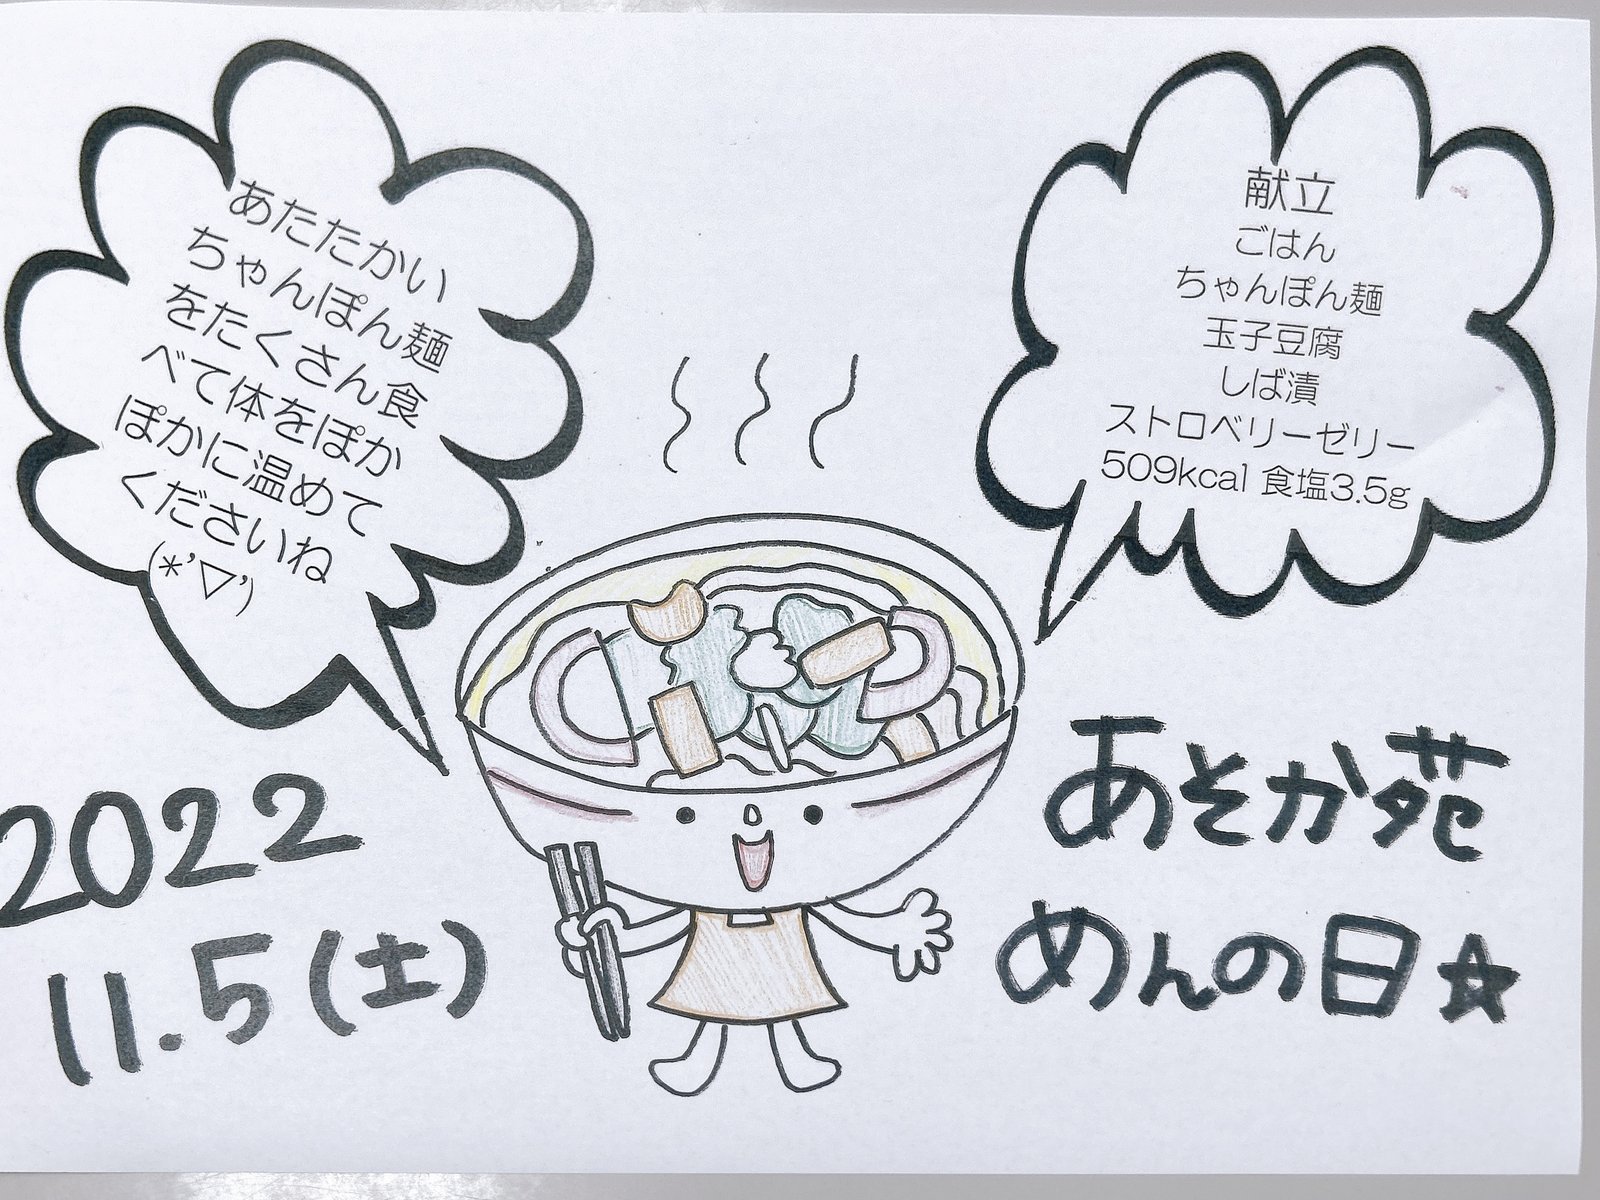 あたたかい
ちゃんぽん麺
をたくさん食
べて体をぽか
ぽかに温めて
くださいね
(*'▽')
献立
ごはん
ちゃんぽん麺
玉子豆腐
しば漬
ストロベリーゼリー
509kcal 食塩3.5g
2022
11.5(土)
あそか苑
めんの日☆